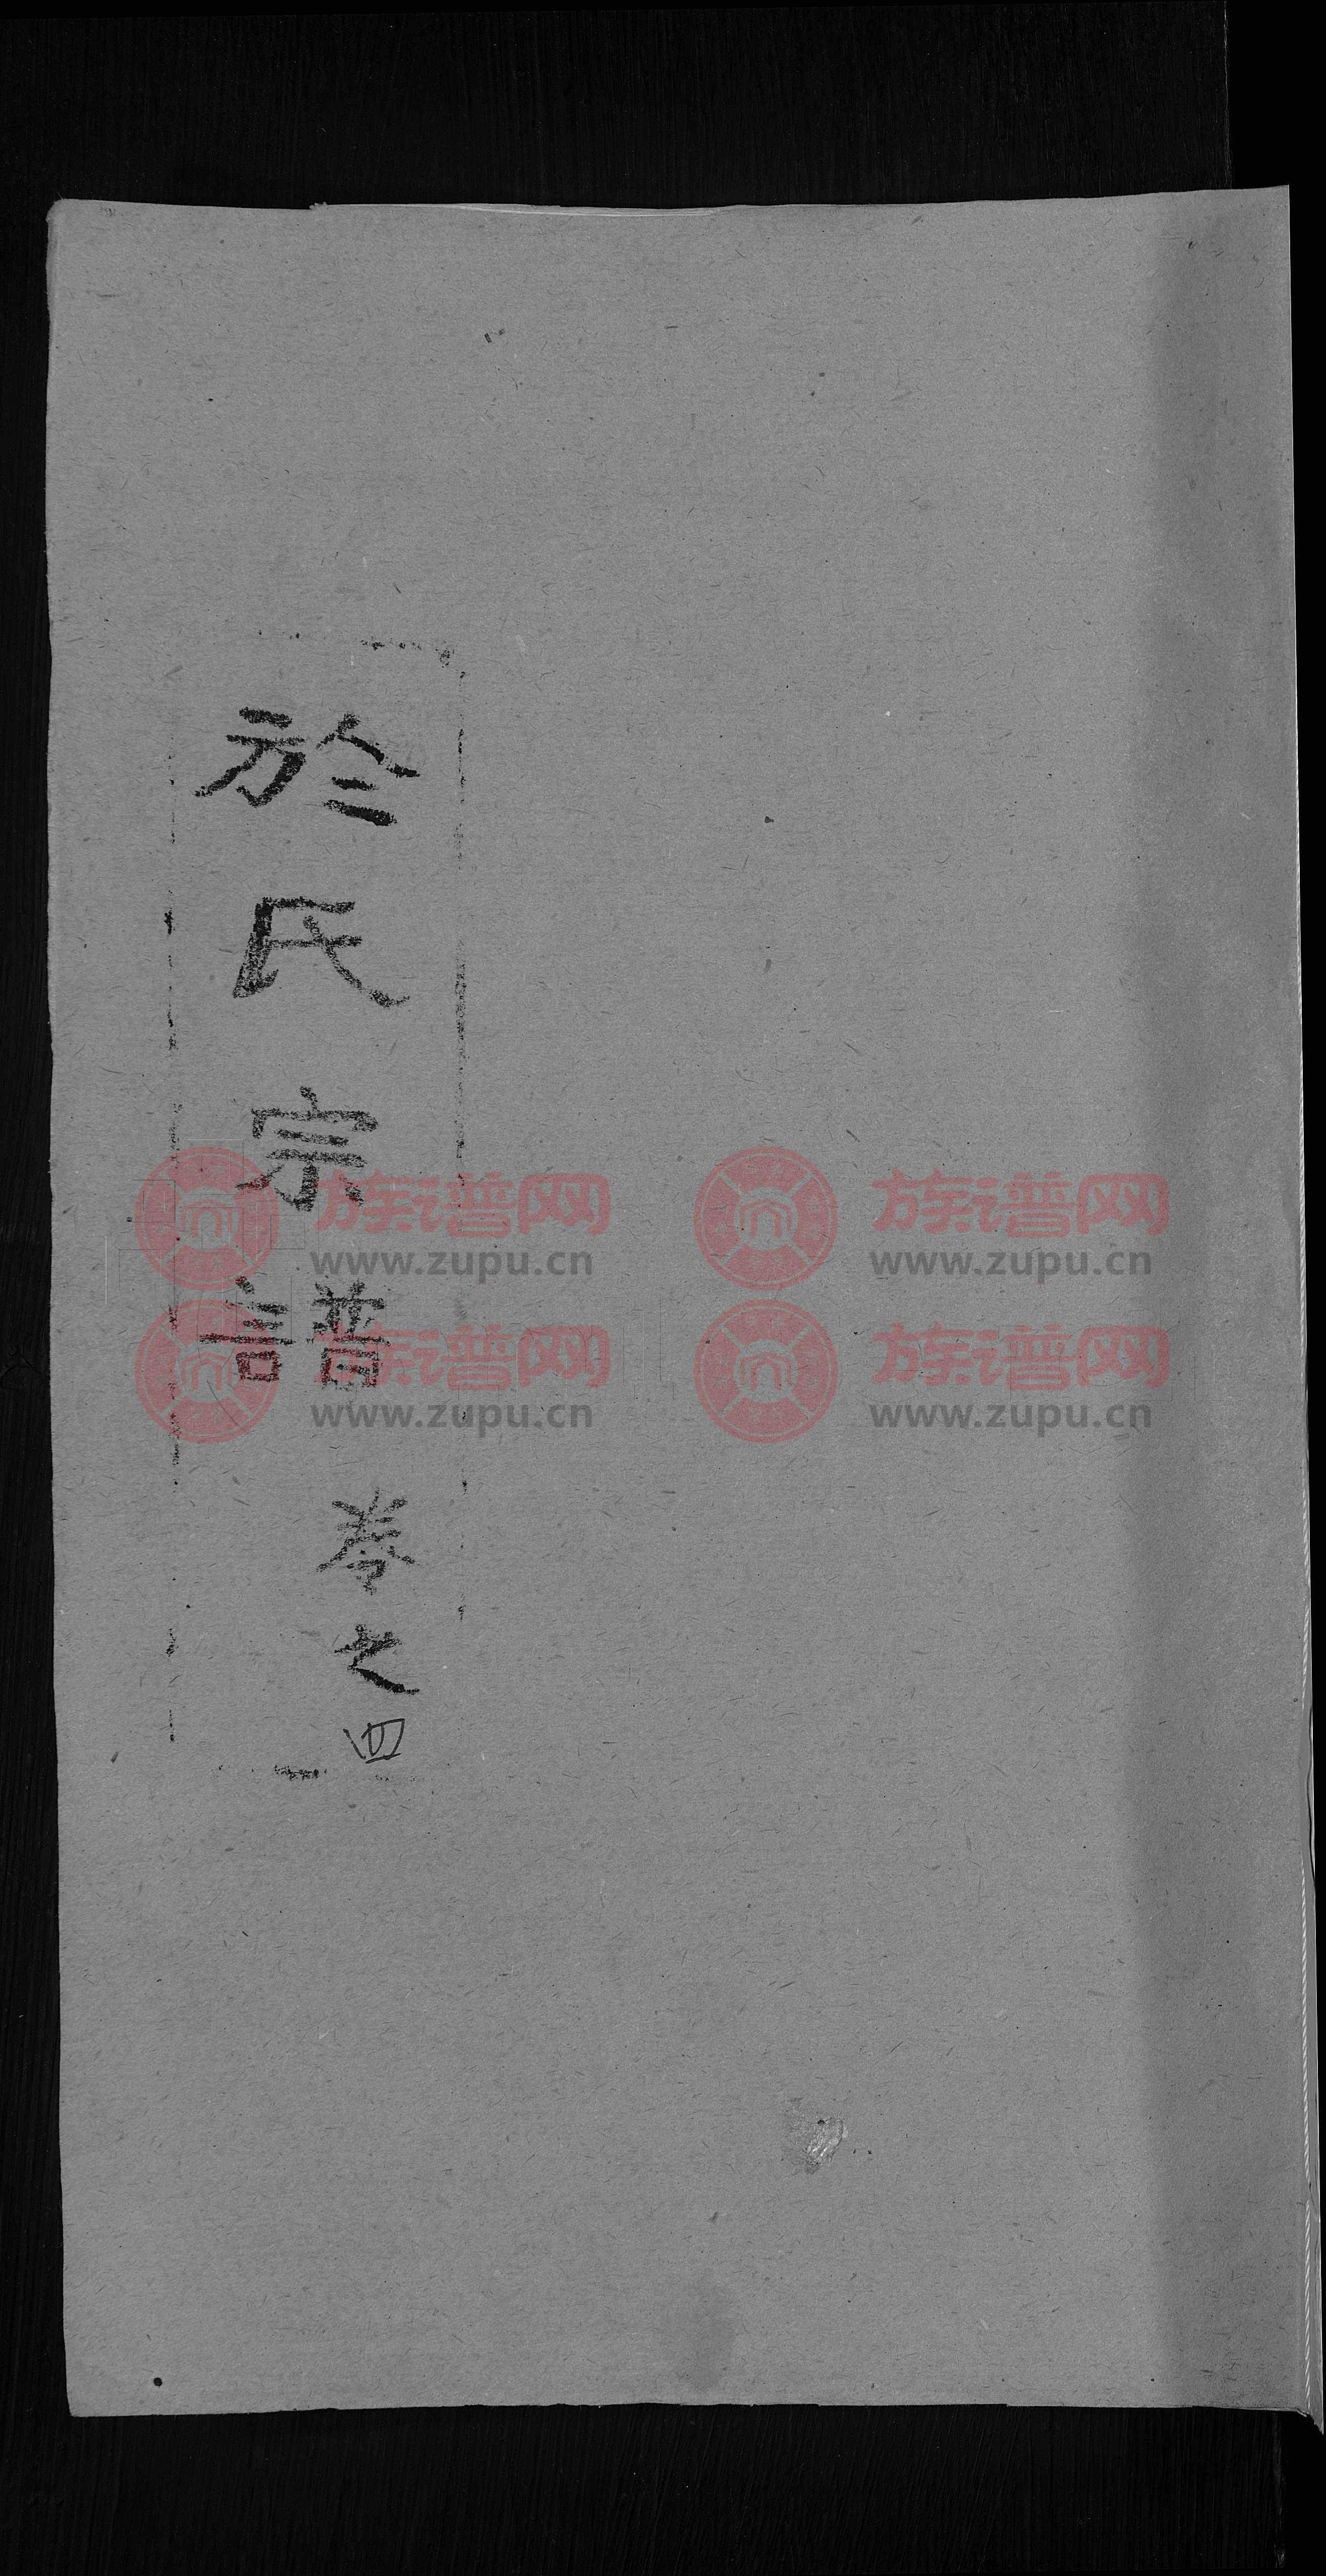 於氏宗譜 卷之四
族谱网 www.zupu.cn
族谱网 www.zupu.cn
族谱网 www.zupu.cn
族谱网 www.zupu.cn